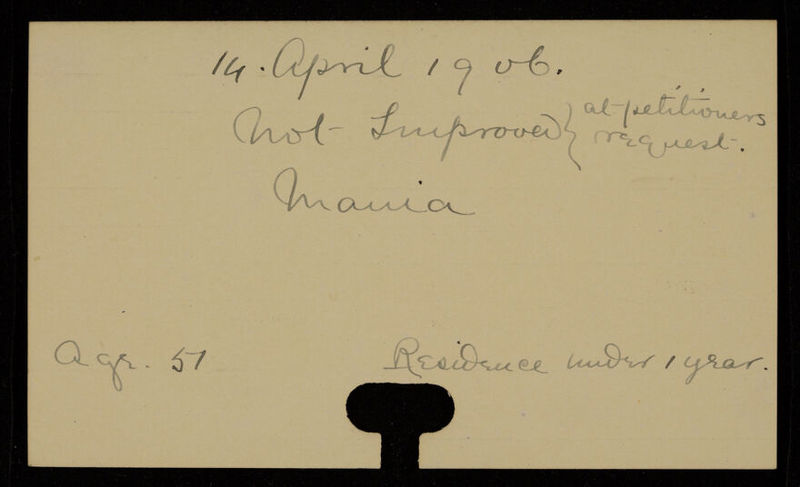 14. April 1906.
Not Improved } at petitioners
request.
Mania
Age. 51 Residence under 1 year.